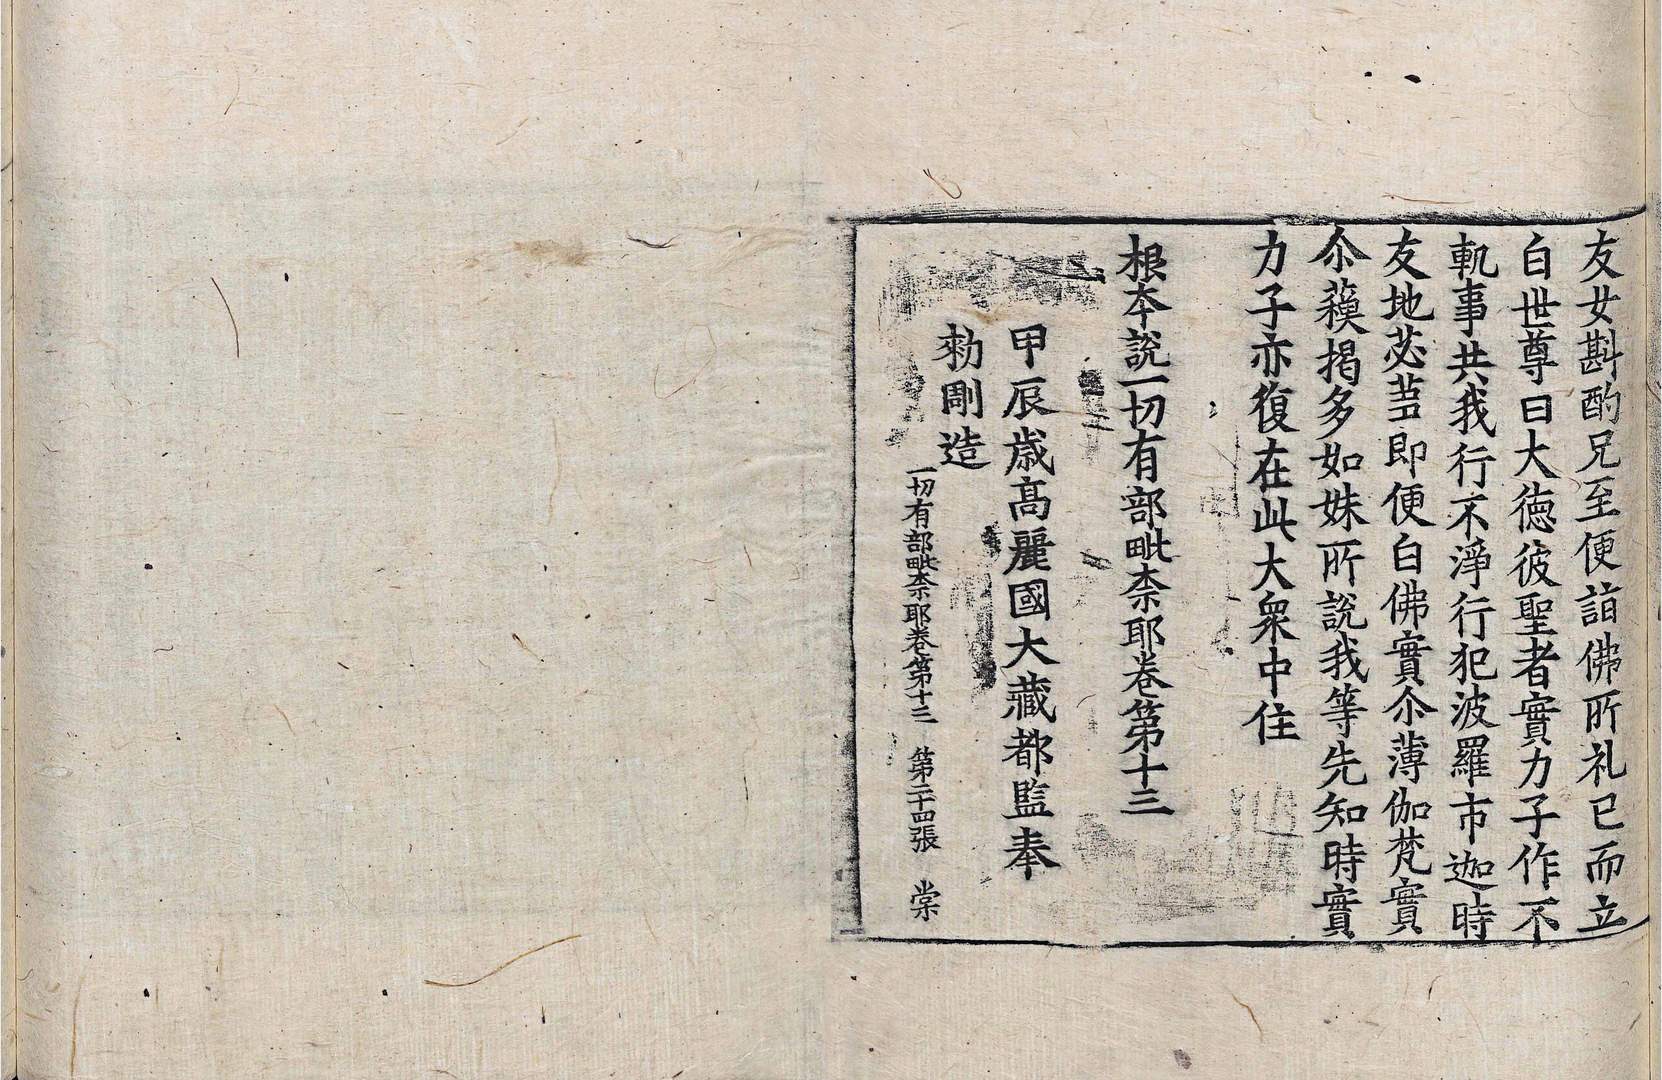 友女斟酌兄至便詣佛所礼已而立
白世尊曰大徳彼聖者實力子作不
軌事共我行不淨行犯波羅市迦時
友地苾芻即便白佛實尒薄伽梵實
尒蘓揭多如姝所說我等先知時實
力子亦復在此大衆中住
根本說一切有部毗柰耶卷第十三
甲辰歳髙麗國大藏都監奉
勑剛造
一切有部毗柰耶卷第十三 第二十四張 棠